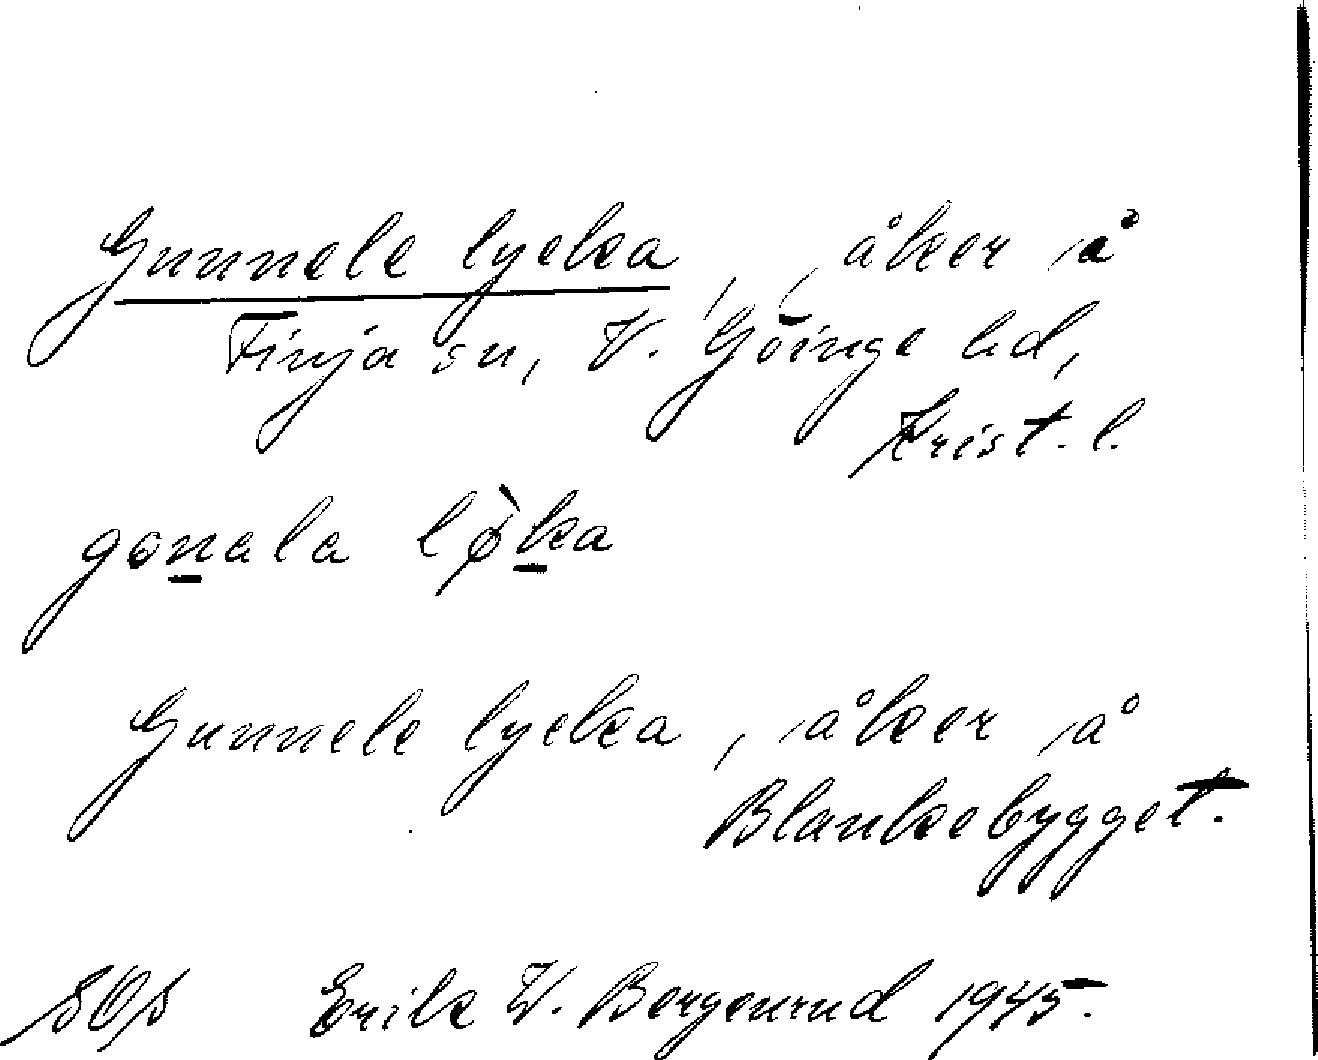 Gunnele lycka, åker å
Finja sn, V. Göinge hd,
Krist. l.
gonala lø̀ka
Gunnele lycka, åker å
Blankebygget.
Erik W. Bergenrud 1945.